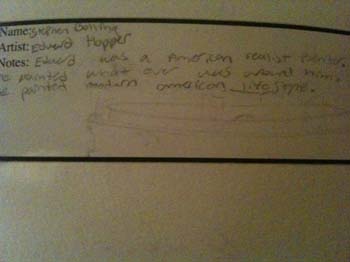 Name: Stephen Bolling
Artist: Edward Hopper
Notes: Edward was a American realist Painter.
He painted what ever was around him.
He painted modern american lifestyle.